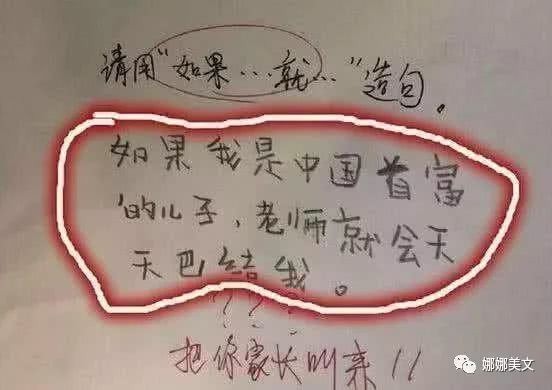 请用"如果…就…"造句。
如果我是中国首富
的儿子，老师就会天
天巴结我。
???
把你家长叫来！！
娜娜美文